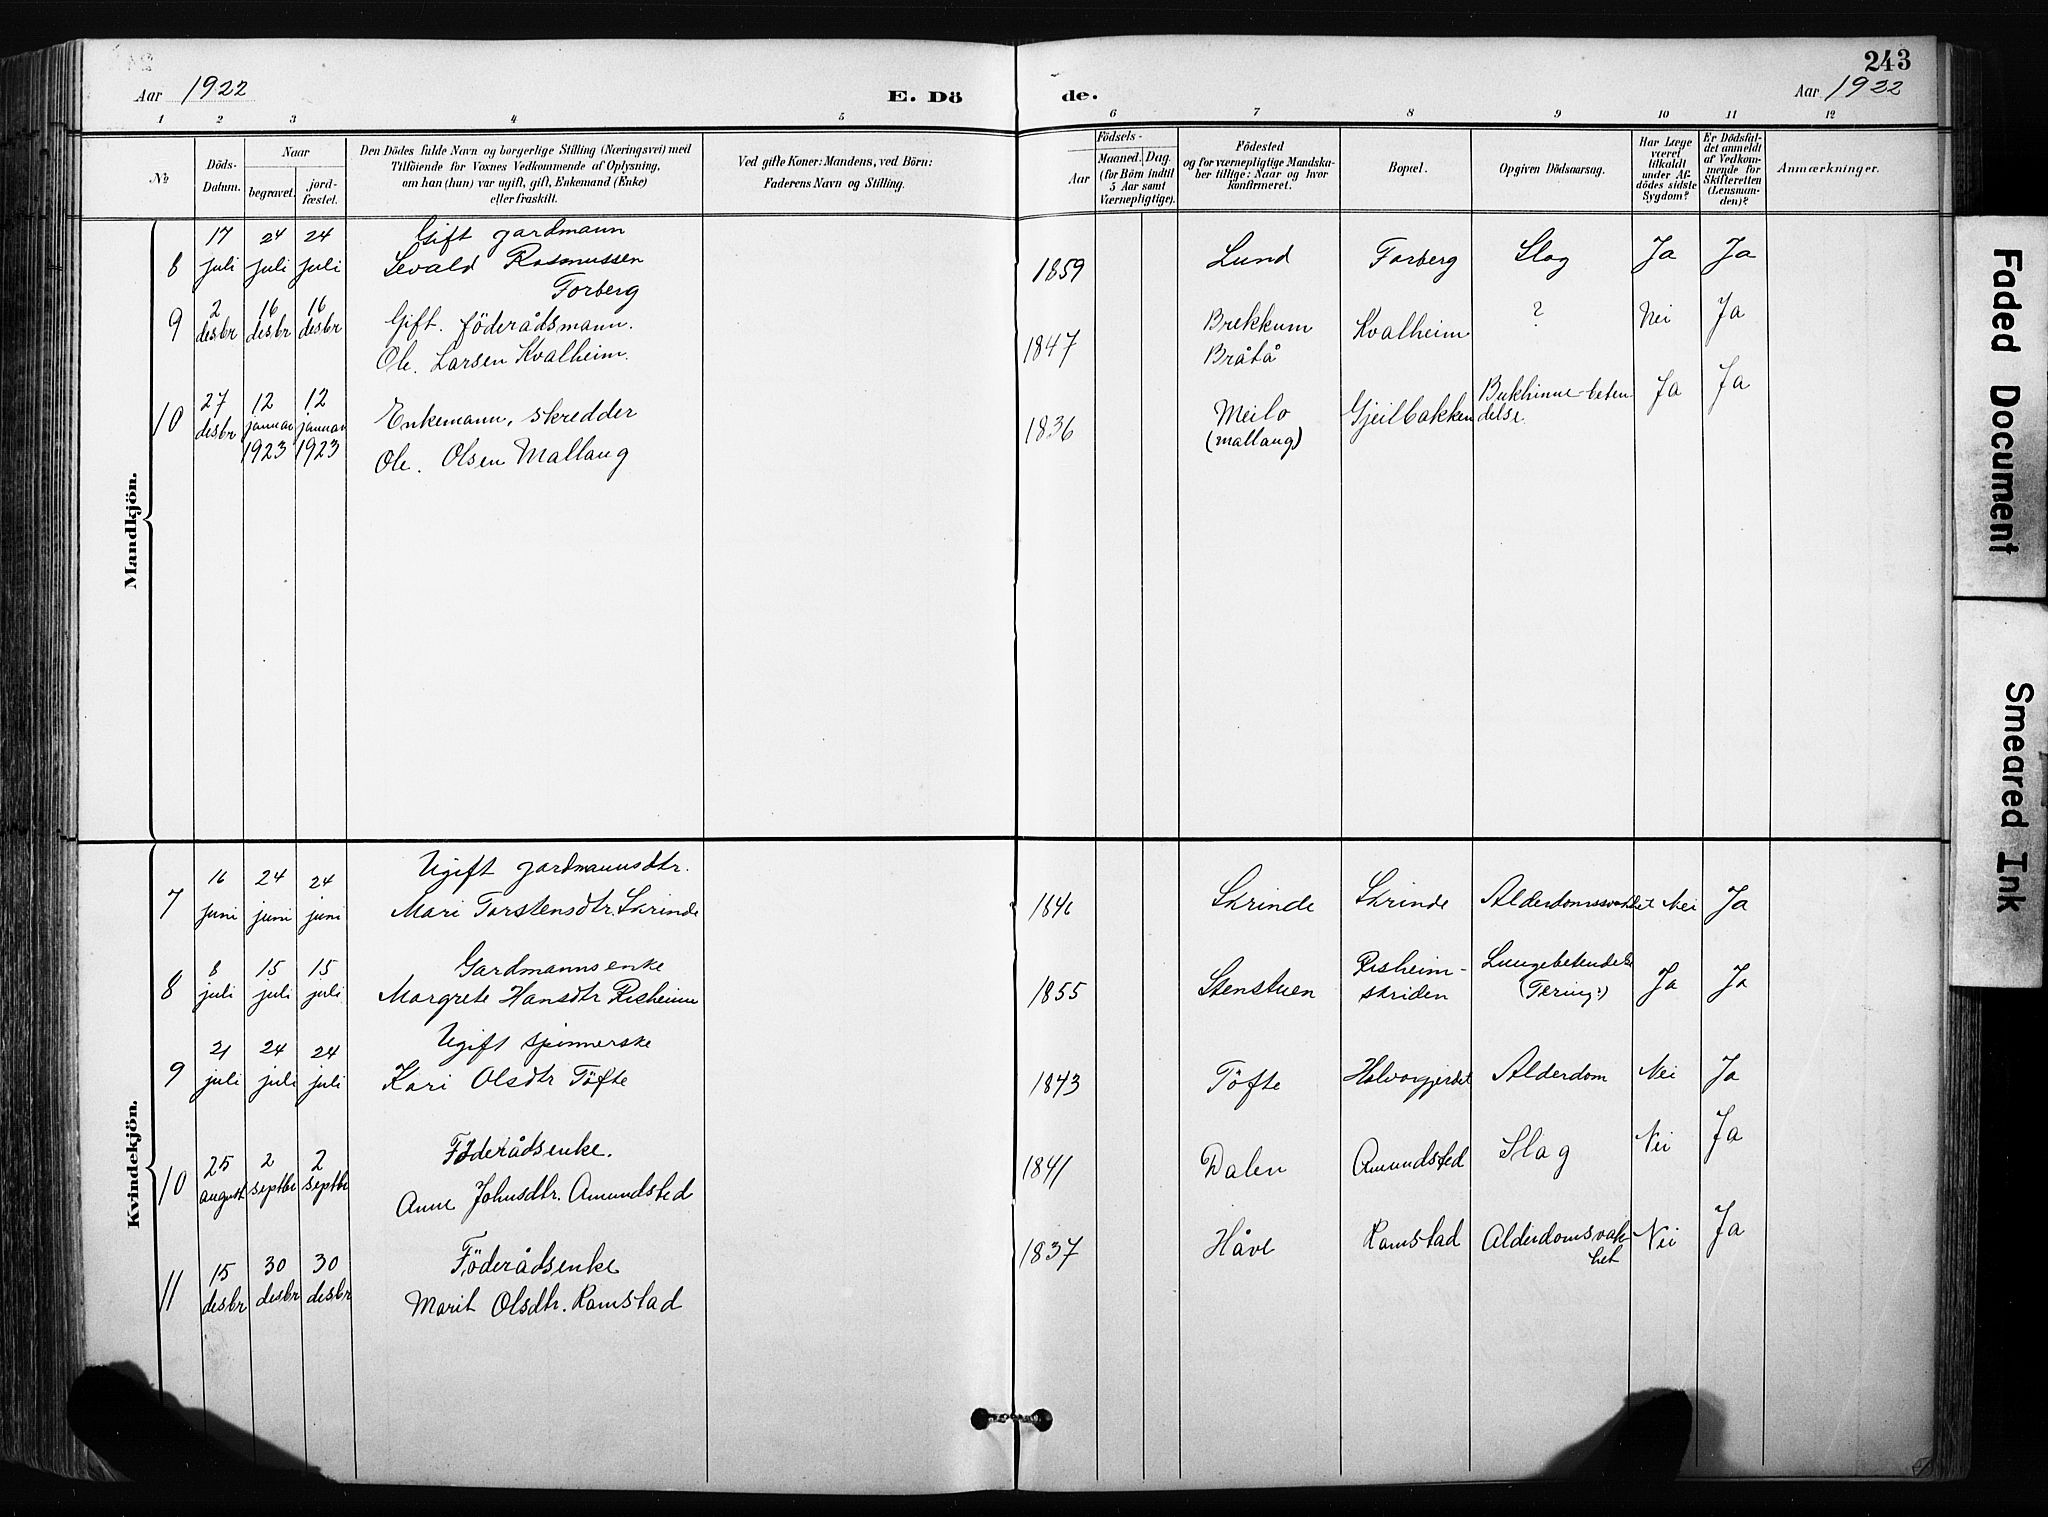 243
Aar 1922
E. Dö
de.
Aar 1922
1 2 3 4 5 6 7 8 9 10 11 12
No
Döds-
Datum.
Naar
begravet.
jord-
fæstet.
Den Dödes fulde Navn og borgerlige Stilling (Næringsvei) med
Tilföiende for Voxnes Vedkommende af Oplysning,
om han (hun) var ugift, gift, Enkemand (Enke)
eller fraskilt.
Ved gifte Koner: Mandens, ved Börn:
Faderens Navn og Stilling.
Födsels-
Aar
Maaned. Dag.
(for Börn indtil
5 Aar samt
Værnepligtige).
Födested
og for værnepligtige Mandska-
ber tillige: Naar og hvor
konfirmeret.
Bopæl.
Opgiven Dödsaarsag.
Har Læge
været
tilkaldt
under Af-
dödes sidste
Sygdom?
Er Dödsfal-
det anmeldt
af Vedkom-
mende for
Skifteretten
(Lensman-
den)?
Anmærkninger.
Mandkjön.
17 24 24 Gift gardmann
8 juli juli juli Sevald Rasmussen 1859 Lund Forberg Slag Ja Ja
Forberg
2 16 16
9 desbr desbr desbr Gift. föderådsmann. Brekkum Kvalheim ? Nei Ja
Ole. Larsen Kvalheim. 1847 Bråtå
27 12 12 Bukhinne-beten-
10 desbr januar januar Enkemann, skredder 1836 Meilo Gjeilbakken delse Ja Ja
1923 1923 Ole. Olsen Mallaug (mallaug)
Kvindekjön.
16 24 24 Ugift gardmannsdtr.
7 juni juni juni Mari Torstensdtr. Skrinde 1846 Skrinde Skrinde Alderdomssvakhet Nei Ja
8 15 15 Gardmannsenke Risheim- Lungebetendelse
8 juli juli juli Margrete Hansdtr Risheim 1855 Stenstuen skriden (Tæring?) Ja Ja
21 24 24 Ugift spinnerske
9 juli juli juli Kari Olsdtr Töfte 1843 Töfte Halvorgjerdet Alderdom Nei Ja
25 2 2 Föderådsenke.
10 august septbr septbr Anne Johnsdtr. Amundsted 1841 Dalen Amundsted Slag Nei Ja
15 30 30 Föderådsenke 1837 Håve Ramstad Alderdomsvak- Nei Ja
het
11 desbr desbr desbr Marit Olsdtr. Ramstad
Faded Document
Smeared Ink